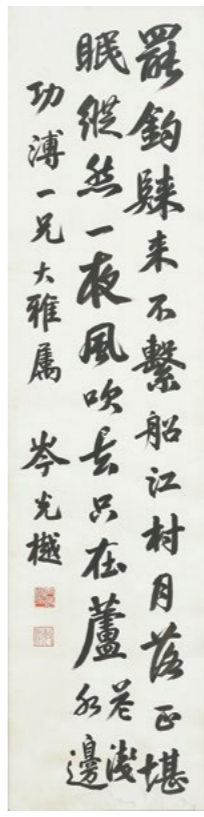 罷釣歸来不繫船江村月落正堪
眠縱然一夜風吹去只在蘆花淺水邊
功溥一兄大雅屬 岑光樾